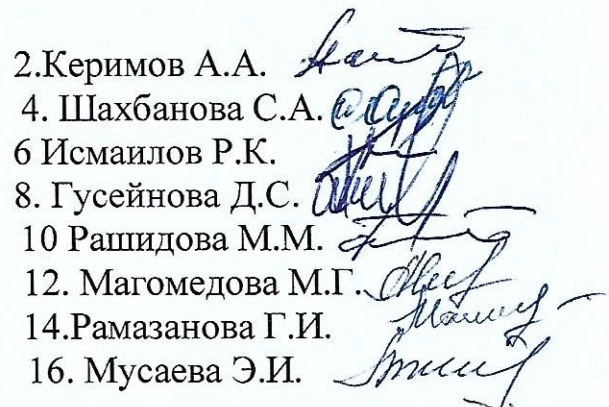 2.Керимов А.А.
4. Шахбанова С.А.
6 Исмаилов Р.К.
8. Гусейнова Д.С.
10 Рашидова М.М.
12. Магомедова М.Г.
14.Рамазанова Г.И.
16. Мусаева Э.И.